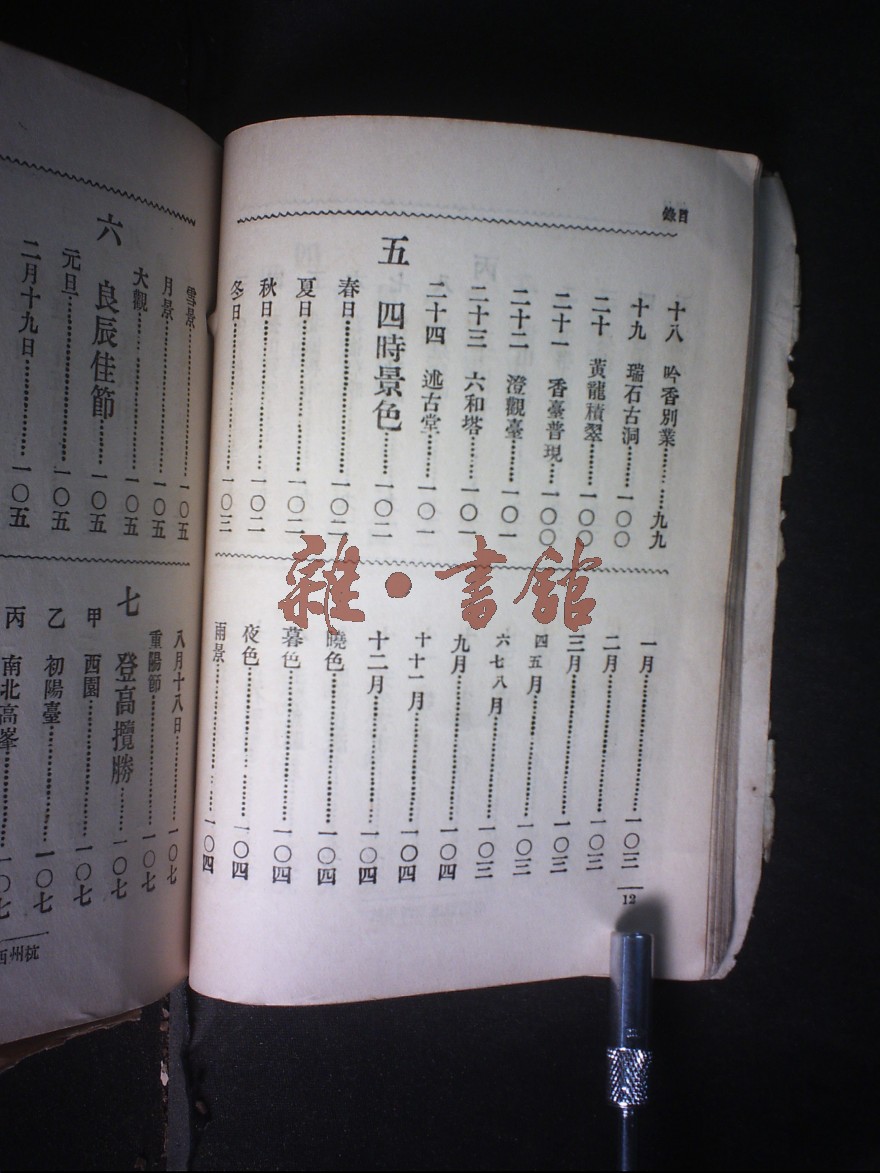 目錄
十八　吟香別業……………九九
十九　瑞石古洞……………一〇〇
二十　黃龍積翠……………一〇〇
二十一　香臺普現……………一〇〇
二十二　澄觀臺……………一〇一
二十三　六和塔……………一〇一
二十四　述古堂……………一〇一
五　四時景色……………一〇二
春日……………一〇二
夏日……………一〇二
秋日……………一〇二
冬日……………一〇三
一月……………一〇三
二月……………一〇三
三月……………一〇三
四五月……………一〇三
六七八月……………一〇三
九月……………一〇四
十十一月……………一〇四
十二月……………一〇四
曉色……………一〇四
暮色……………一〇四
夜色……………一〇四
雨景……………一〇四
12
雪景……………一〇五
月景……………一〇五
大觀……………一〇五
六　良辰佳節……………一〇五
元旦……………一〇五
二月十九日……………一〇五
八月十八日……………一〇七
重陽節……………一〇七
七　登高攬勝……………一〇七
甲　西園……………一〇七
乙　初陽臺……………一〇七
丙　南北高峯……………一〇七
杭州西
雜·書館